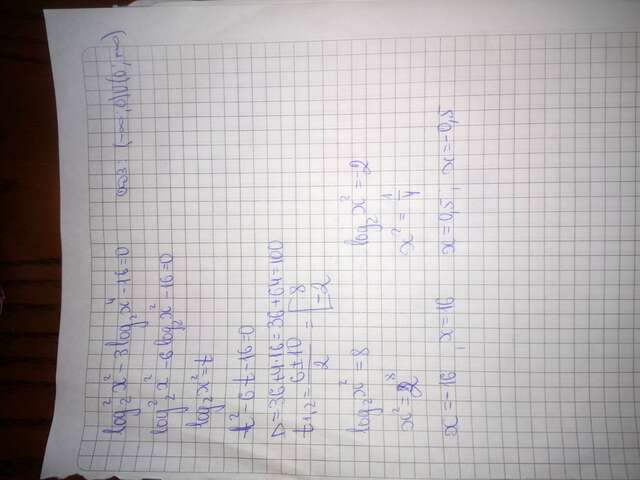 log₂² x² - 3 log₂ x⁴ - 16 = 0 ОДЗ: (-∞; 0)∪(0; +∞)
log₂² x² - 6 log₂ x² - 16 = 0
log₂ x² = t
t² - 6t - 16 = 0
D = 36 + 4·16 = 36 + 64 = 100
t₁,₂ = (6 ± 10)/2 = [8 -2
log₂ x² = 8 log₂ x² = -2
x² = 2⁸ x² = 1/4
x = -16, x = 16 x = 0,5; x = -0,5